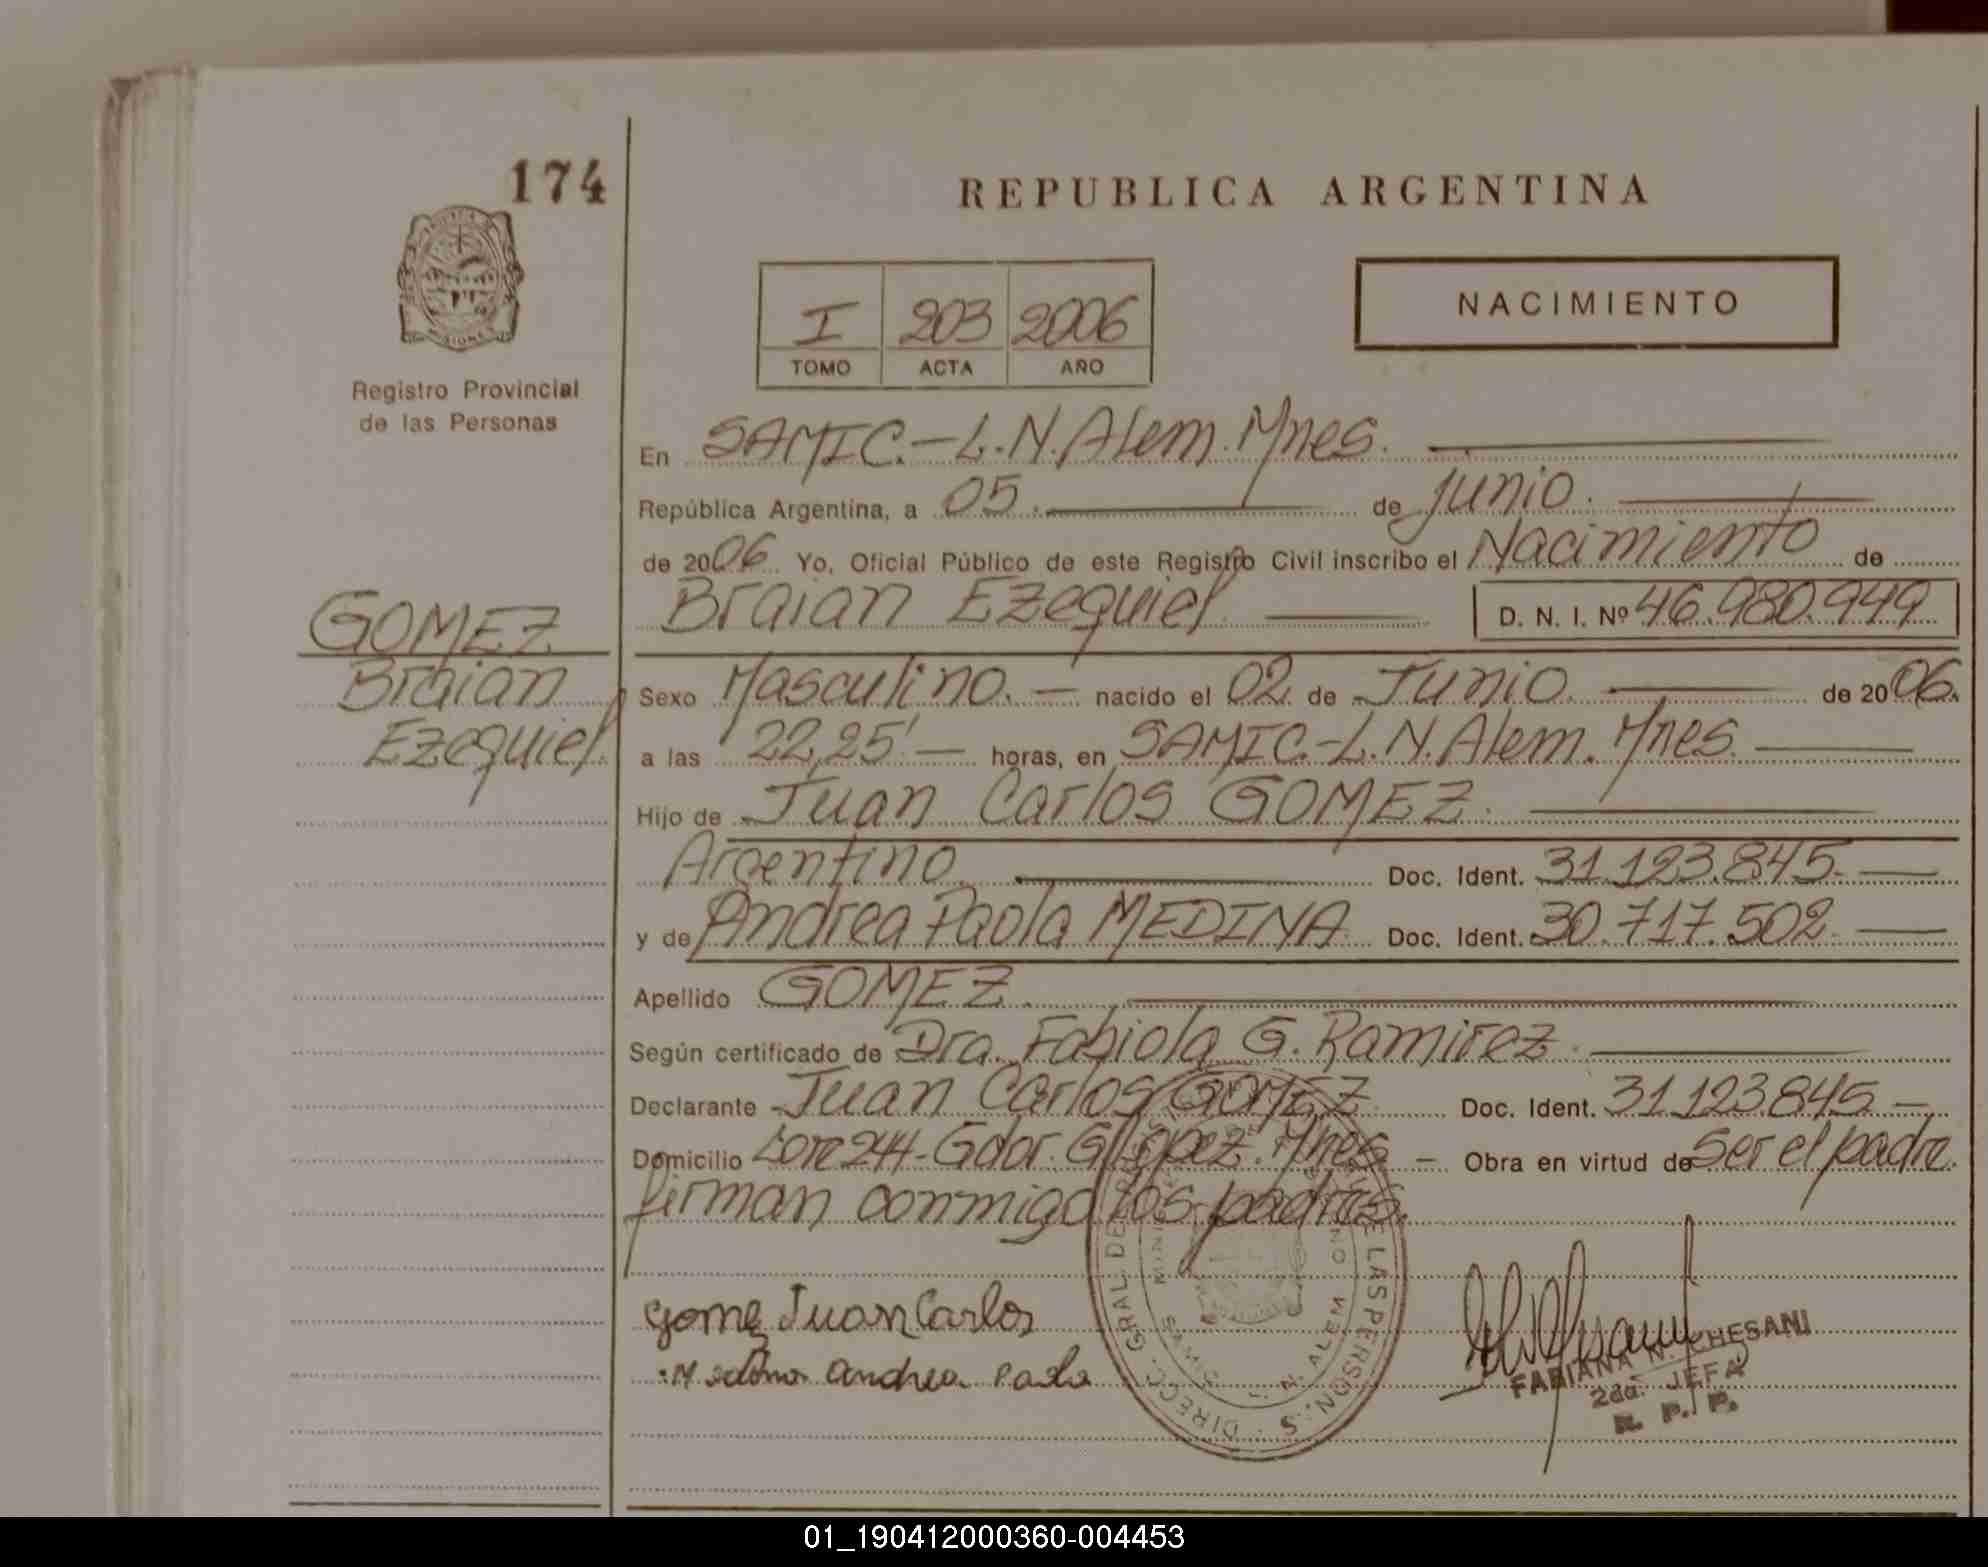 174
REPUBLICA ARGENTINA
I 203 2006
TOMO ACTA AÑO
NACIMIENTO
Registro Provincial
de las Personas
En SAMIC.-L.N.Alem.Mnes.
República Argentina, a 05. de junio.
de 2006 Yo, Oficial Público de este Registro Civil inscribo el Nacimiento de
Braian Ezequiel D. N. I. Nº 46.980.949
GOMEZ
Braian
Ezequiel.
Sexo Masculino. — nacido el 02 de Junio. de 2006.
a las 22,25' — horas, en SAMIC.-L.N.Alem. Mnes.
Hijo de Juan Carlos GOMEZ.
Argentino Doc. Ident. 31.123.845.
y de Andrea Paola MEDINA Doc. Ident. 30.717.502.
Apellido GOMEZ.
Según certificado de Dra. Fabiola G. Ramirez.
Declarante Juan Carlos GOMEZ Doc. Ident. 31.123.845 —
Domicilio 244- Gdor. Lopez. Mnes — Obra en virtud de ser el padre.
firman conmigo los padres.
Gomez Juan Carlos
Medina Andrea Paola
DIRECC. GRAL DE LAS PERSONAS
L. N. ALEM
FABIANA N. CHESANI
2da. JEFA
R. P. P.
01_190412000360-004453